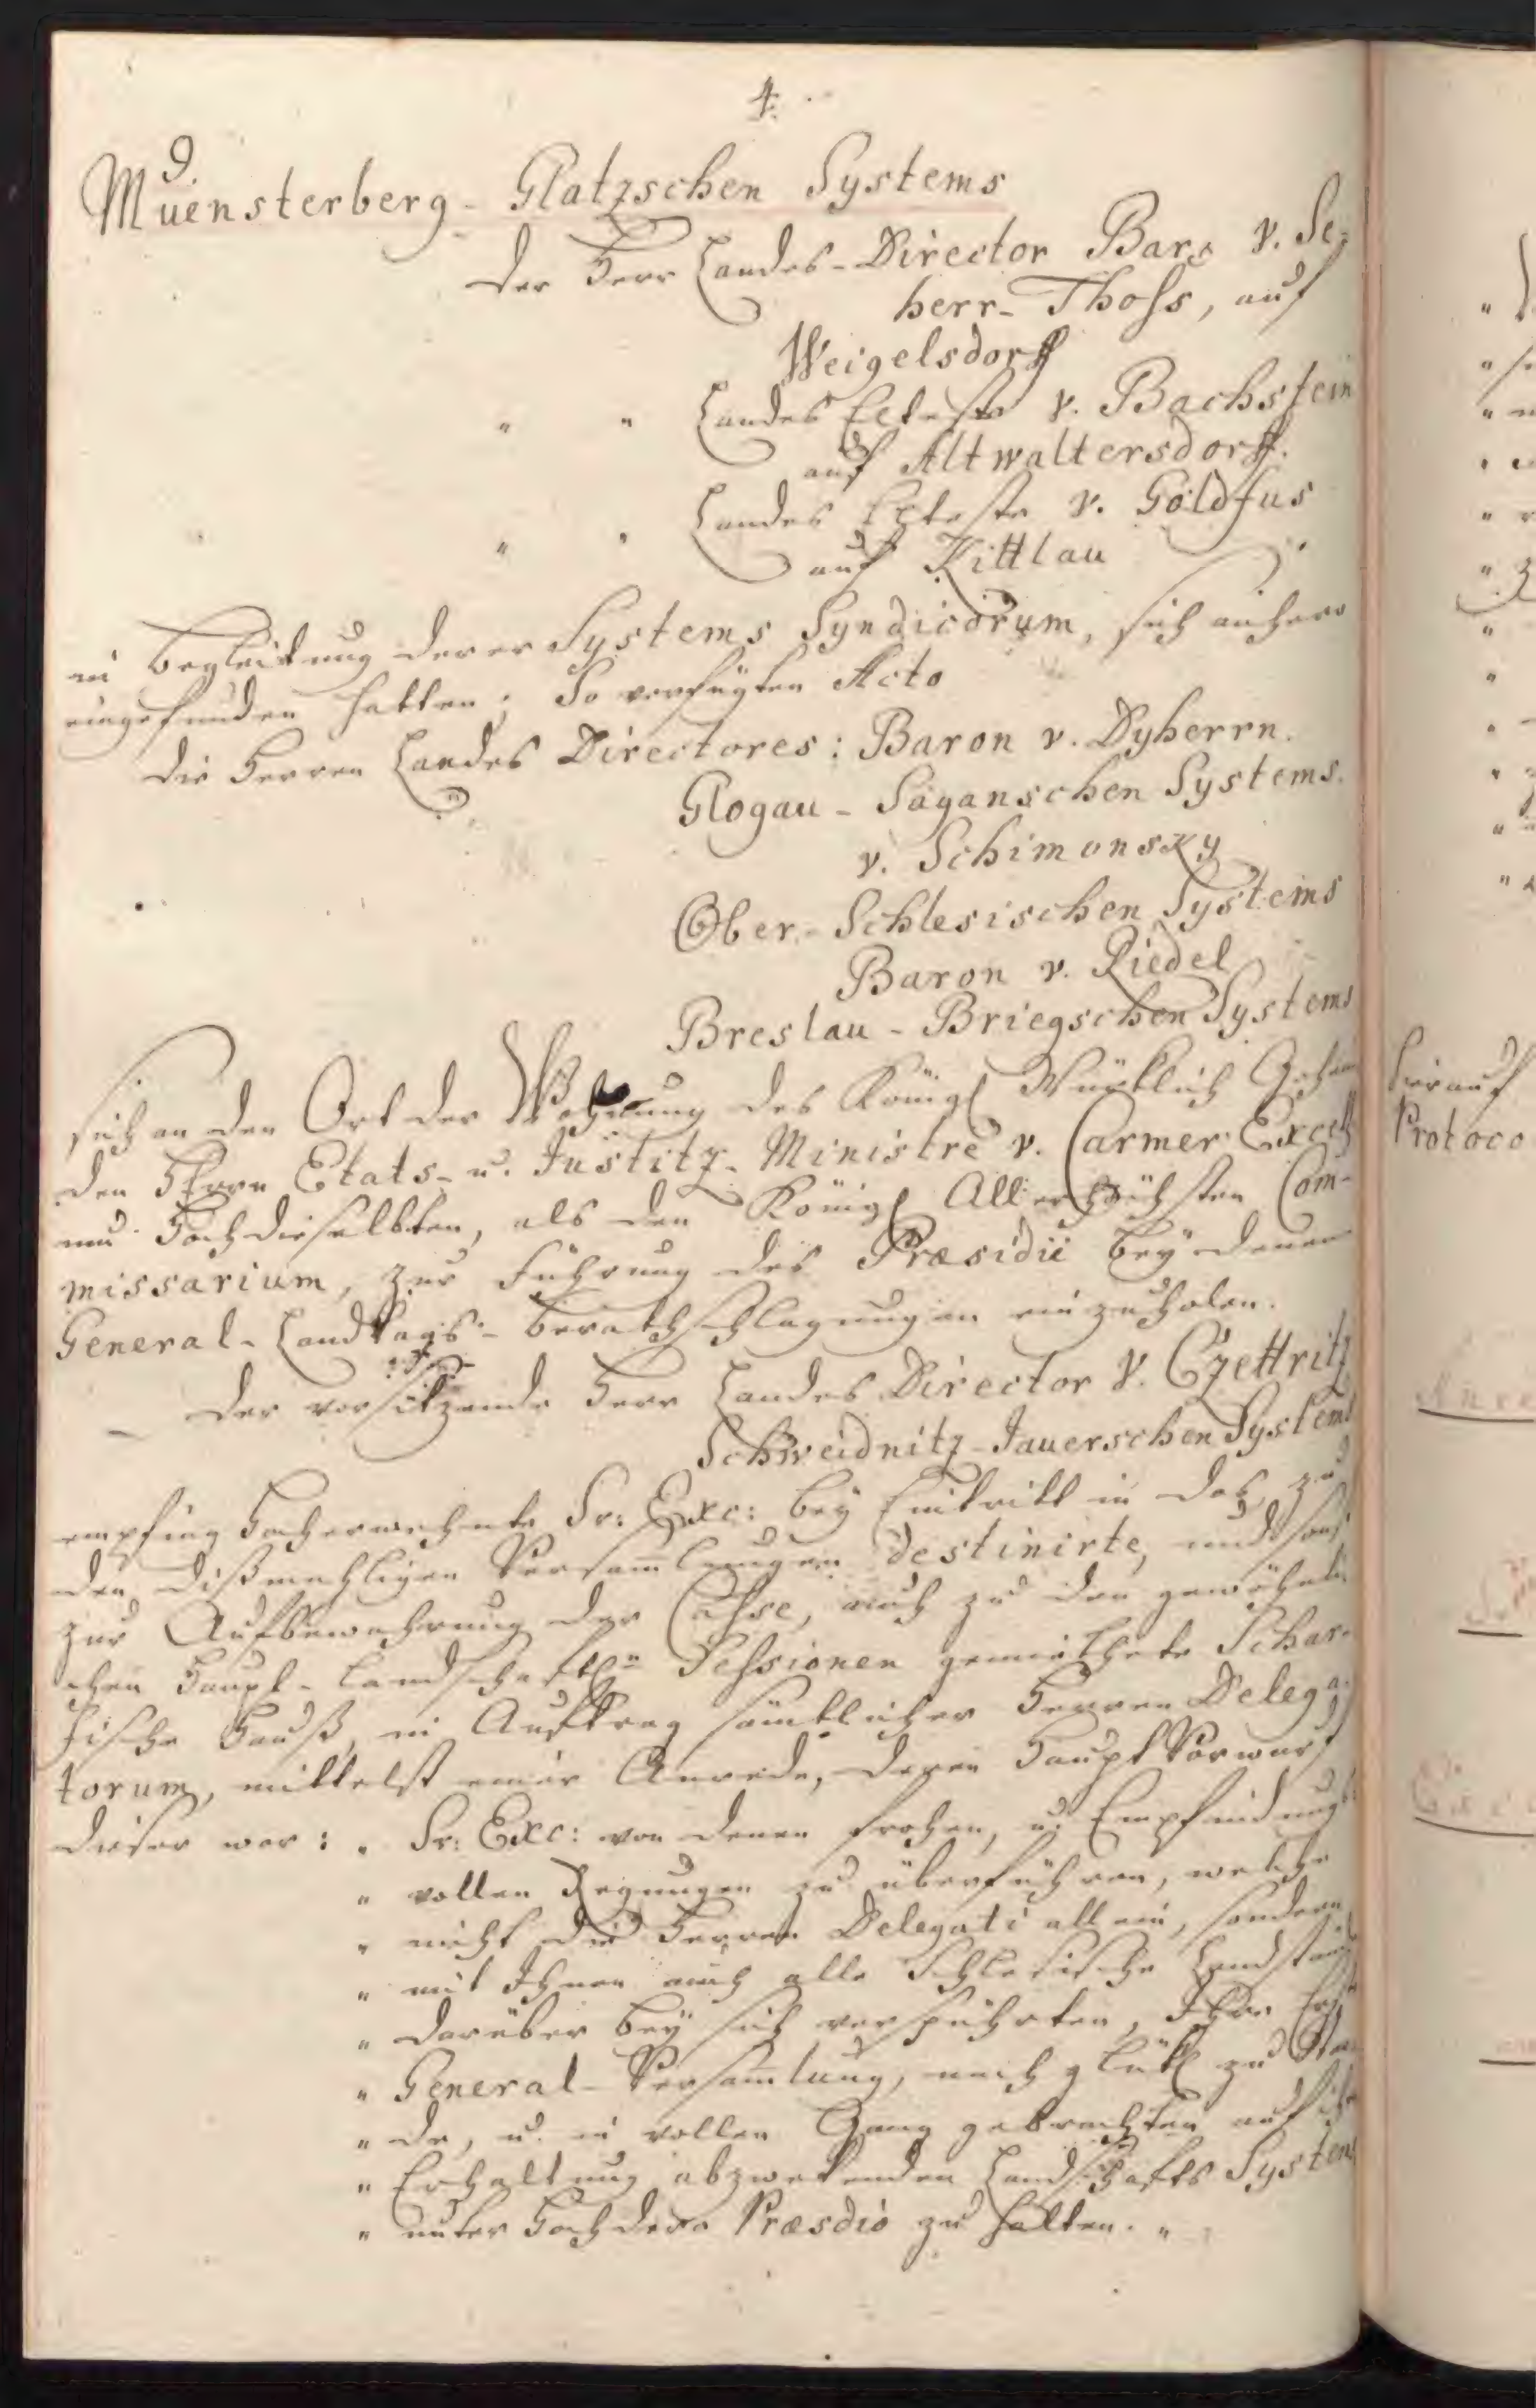 4.
9.
Muensterberg-Glatzschen Systems
Der Herr Landes-Director Bar: v. Se-
herr-Thoss, auf
Weigelsdorff
" " Landes Elteste v. Bachstein
auf Altwaltersdorff.
" " Landes Elteste v. Goldfus
auf Kittlau
in Begleitung derer Systems Syndicorum, sich anhero
eingefunden hatten; So verfügten Acto
die Herren Landes Directores: Baron v. Dyherrn.
Glogau-Saganschen Systems.
v. Schimonsky
Ober-Schlesischen Systems
Baron v. Riedel
Breslau-Briegschen Systems
sich an den Ort der Wohnung des Königl Würklich Geheim
den Herrn Etats- u. Justitz-Ministre v. Carmer Excell
um Hochdieselbten, als den Königl Allerhöchsten Com-
missarium, zur Führung des Præsidii bey denen
General-Landtags-Berathschlagungen einzuholen.
Der vorsitzende Herr Landes Director v. Czettritz
Schweidnitz-Jauerschen Systems
empfing Hocherwehnte Sr: Exc: bey Eintritt in das, zu
den dißmahligen Versam̅lungen destinirte, und sonst
zur Aufbewahrung der Casse, auch zu den gewöhnli
chen Haupt-Landschaftln Sessionen gemiethete Schar-
fische Hauß, in Auftrag sämtlicher Herren Delega-
torum, mittelst einer Anrede, deren Haupt Vorwurf
dieser war: " Sr: Exc: von denen frohen, u. Empfindungs
" vollen Regungen zu überführen, welche
" nicht die Herren Delegati allein, sondern
" mit Ihnen auch alle Schlesische Landstände
" darüber bey sich verspührten, Ihre
" General-Versam̅lung, nach glükl zu Stan
" de, u. in vollen Gang gebrachten auf ihre
" Erhaltung abzwekenden Landschafts System
" unter Hochdero Præsdio zu halten. "
hierauf
Protoco